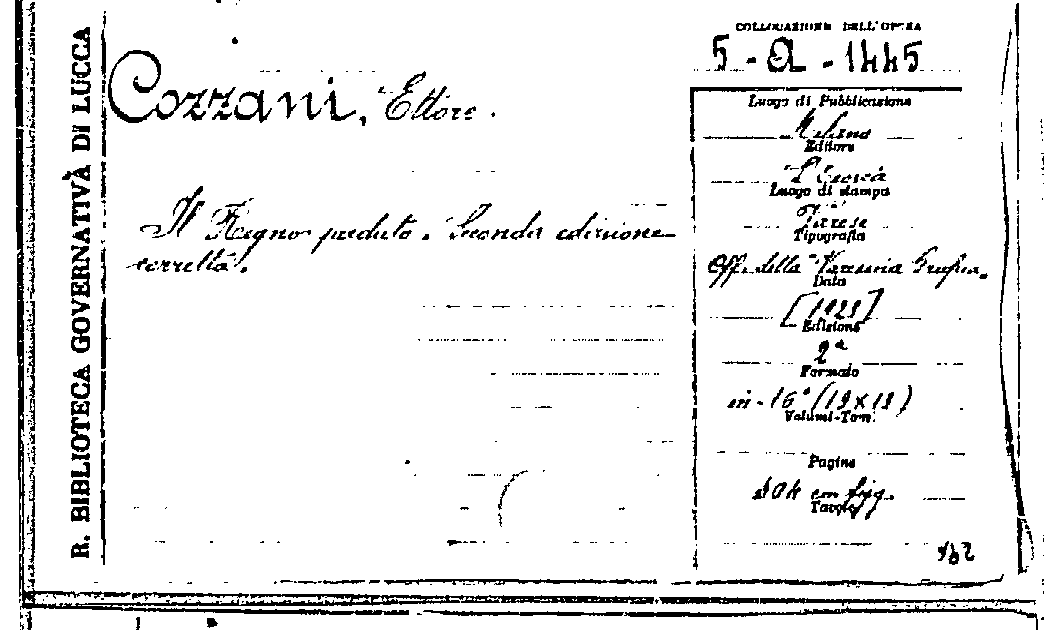 R. BIBLIOTECA GOVERNATIVA DI LUCCA
Cozzani, Ettore.
Il Regno perduto. Seconda edizione
corretta.
COLLOCAZIONE DELL'OPERA
5 - a - 1445
Luogo di Pubblicazione
Milano
Editore
L'Eroica
Luogo di stampa
Varese
Tipografia
Off. della Varesina Grafica.
Data
[1925]
Edizione
2ª
Formato
in-16° (19 x 12)
Volumi-Tom.
Pagine
con figg.
Tavole